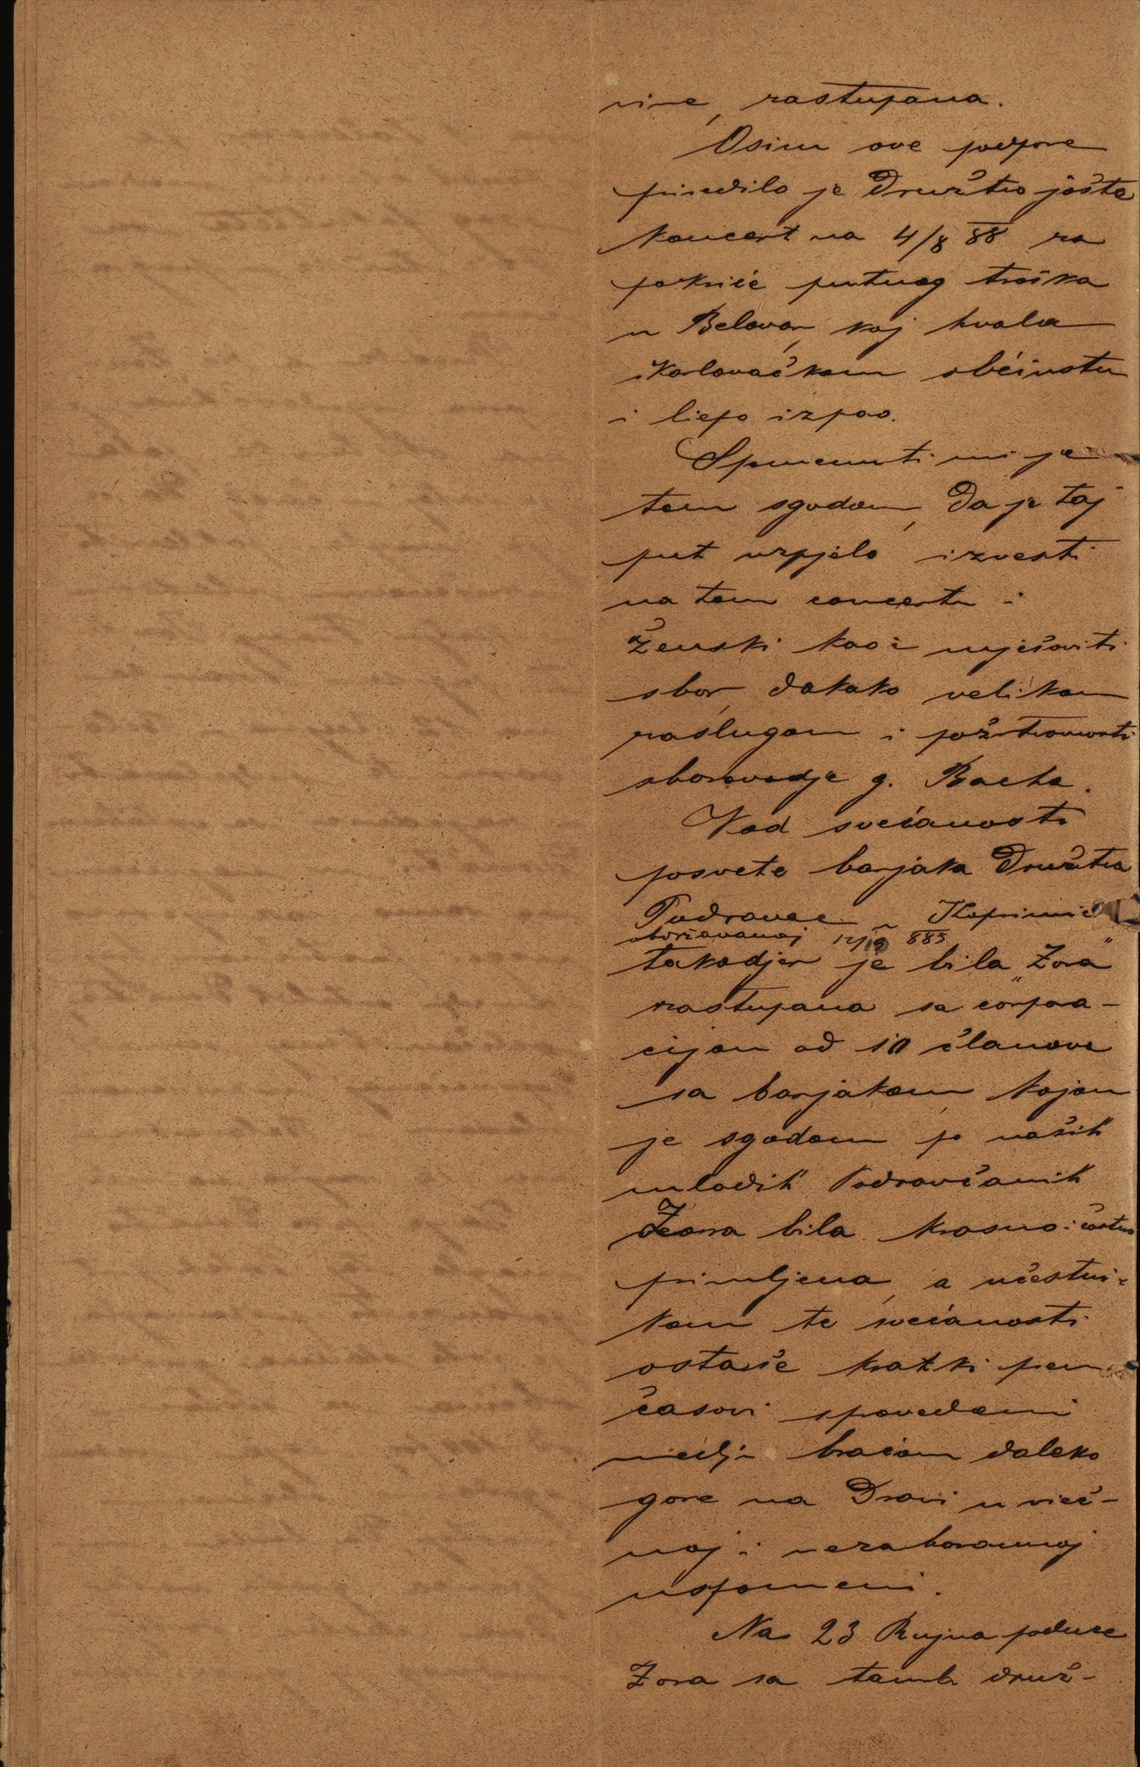 nine, zastupana.
Osim ove podpore
priredilo je Družtvo jošte
koncert na 4/8 88 za
pokriće putnog troška
u Belovar, koj hvala
Karlovačkom obćinstvu
i liepo izpao.
Spomenuti mi je
tom sgodom, da je taj
put uzpjelo izvesti
na tom concertu i
ženski kao i mješoviti
sbor, dakako velikom
zaslugom i požrtvovnosti
sborovodje g. Bacha.
Kod svečanosti
posvete barjaka Družtva
Podravac u Koprivnici
obdržavanoj 888
takodjer je bila „Zora"
zastupana sa corpora-
cijom od 10 članova
sa barjakom, kojom
je sgodom po naših
mladih Podravčanih
Zora bila krasno i
primljena, a učestni-
kom te svečanosti
ostaše kratki
časovi sprovedeni
medju braćom daleko
gore na Dravi u vieč-
noj i nezaboravnoj
uspomeni.
Na 23 Rujna poduze
Zora sa tamb. druž-